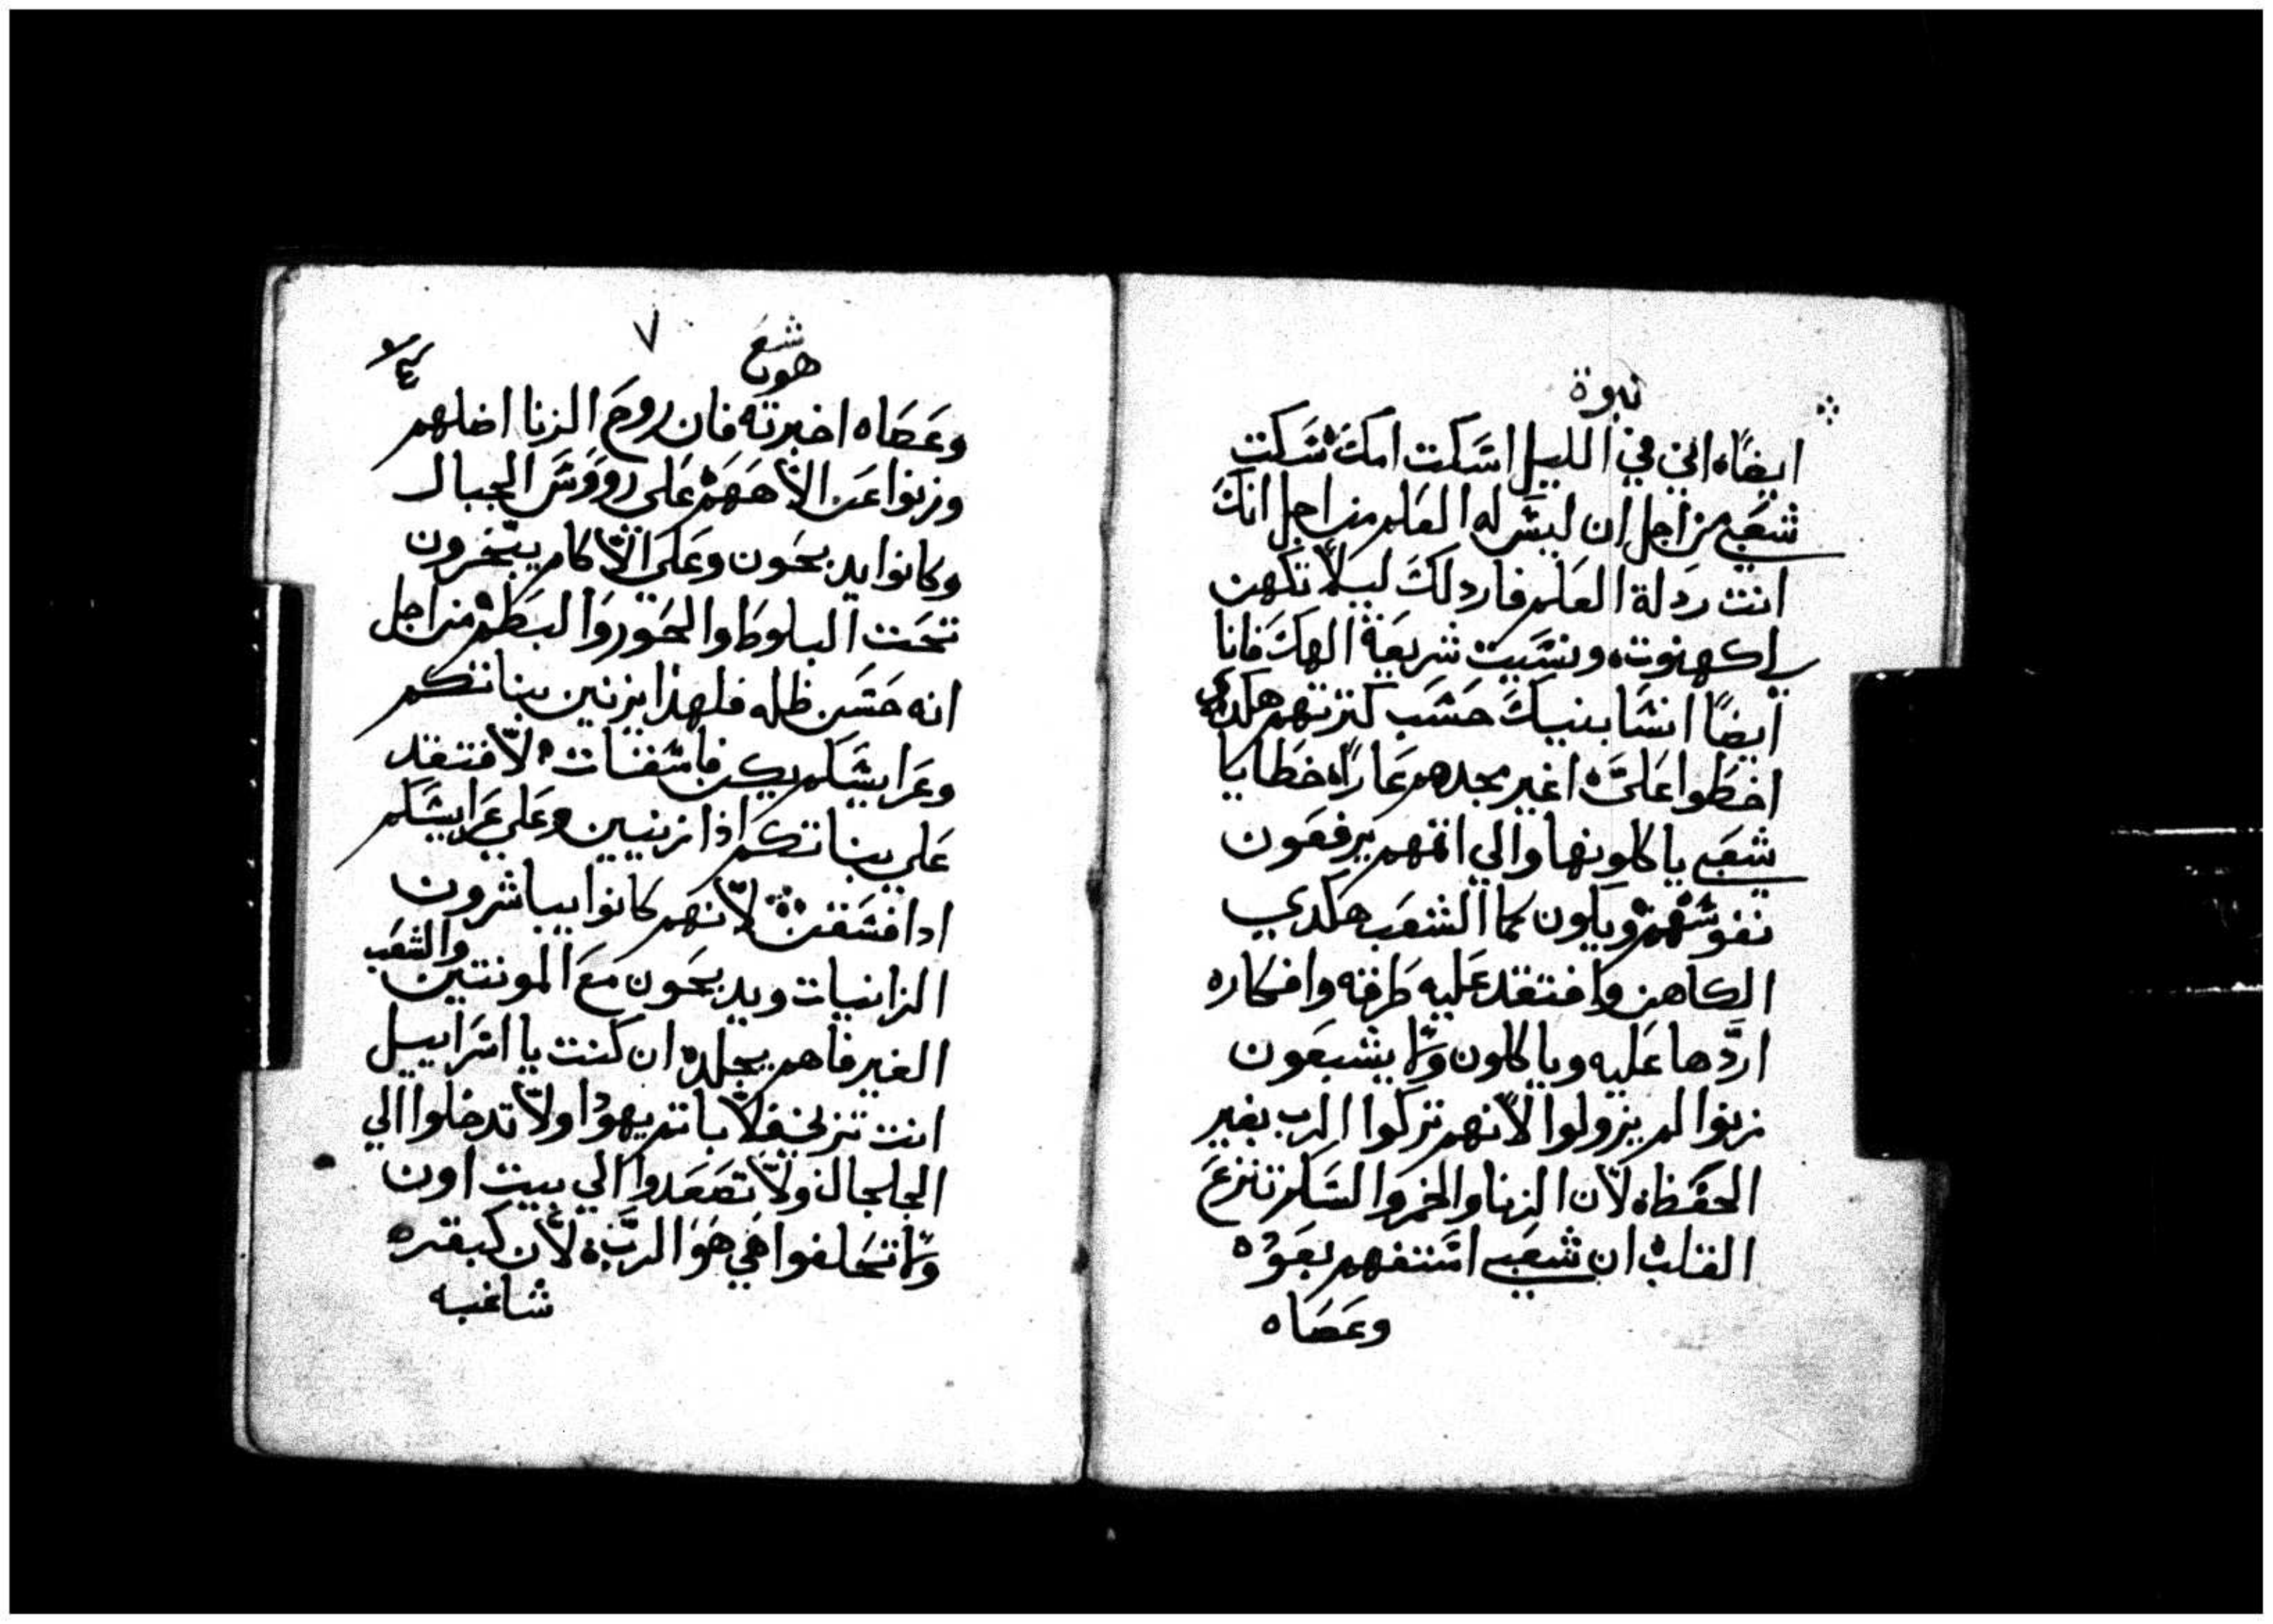 نبوة
ايضًا انى في الليل اسَكت امكَ سَكت
شعَبي من اجل ان ليسَ له العَلم من اجل انكَ
انت ردلة العَلم فاردلكَ ليلاّ تكهن
لي كهنوت ونسَيت شريعَة الهكَ فانا
ايضًا انسَا بنيكَ حسَب كترتهم هكدي
اخطوا عَليَّ اغير مجدهم عَارًا خطايا
شعَبي ياكلونها والي اتمهم يرفعَون
نفوسَهم ويكون كما الشعَب هكدي
الكاهن وافتقد عَليه طرقه وافكاره
اردَّها عَليه وياكلون ولا يشبعَون
زنوا لم يزولوا لانهم تركوا الرب بغير
الحفظ لان الزنا والخمر والسَكر تنزعَ
القلب ان شعَبي اسَتفهم بعَوُده
وعَصَاه
هوشع
٧
وعَصَاه اخبرته فان روحَ الزنا اضلهم
وزنوا عَن الاههم عَلى رووسَ الجبال
وكانوا يدبحَون وعَلى الاكام يبخرون
تحَت البلوط والحَور والبطم من اجل
انه حَسَن ظله فلهذا يزنين بناتكم
وعَرايسَكم يكن فاسَقات ولاّ افتقد
عَلي بناتكم اذا زنين وعَلي عَرايسَكم
ادا فسَقن لاّنهم كانوا يباشرون
الزانيات ويدبحَون معَ المونتين والشعَب
الغير فاهم يجلده ان كنت يا اسَراييل
انت تزني فلا ياتم يهودا ولاّ تدخلوا الي
الجلجال ولاّ تصَعَدوا الي بيت اون
ولا تحَلفوا حَي هوَ الربَّ لاّن كبقره
شاغبه